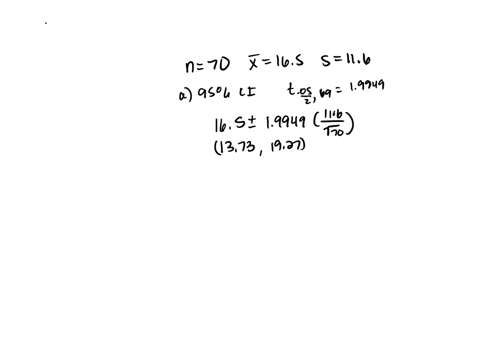 n=70 x̄=16.5 s=11.6
a) 95% CI t.05/2, 69 = 1.9949
16.5 ± 1.9949 (11.6/√70)
(13.73, 19.27)